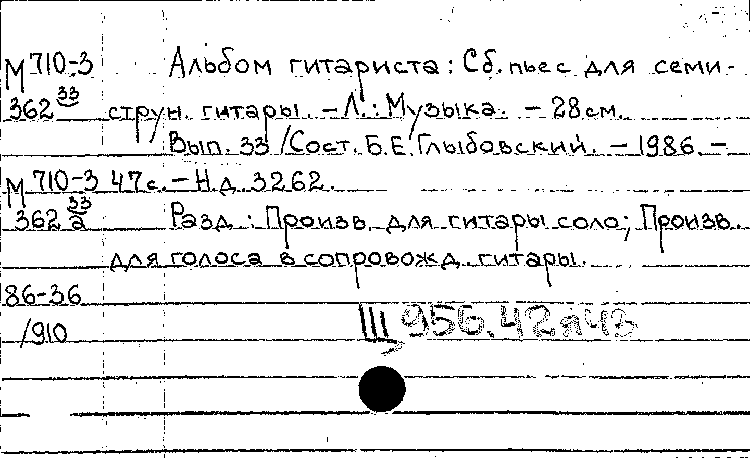 М 710-3 Альбом гитариста: Сб. пьес для семи-
362 33 струн. гитары. - Л.: Музыка. - 28 см.
Вып. 33 / Сост. Б.Е. Глыбовский. - 1986. -
М 710-3 47 с. - Н.д. 3262.
362 33 2 Разд.: Произв. для гитары соло; Произв.
для голоса в сопровожд. гитары.
86-36
/910
III 956.42я43